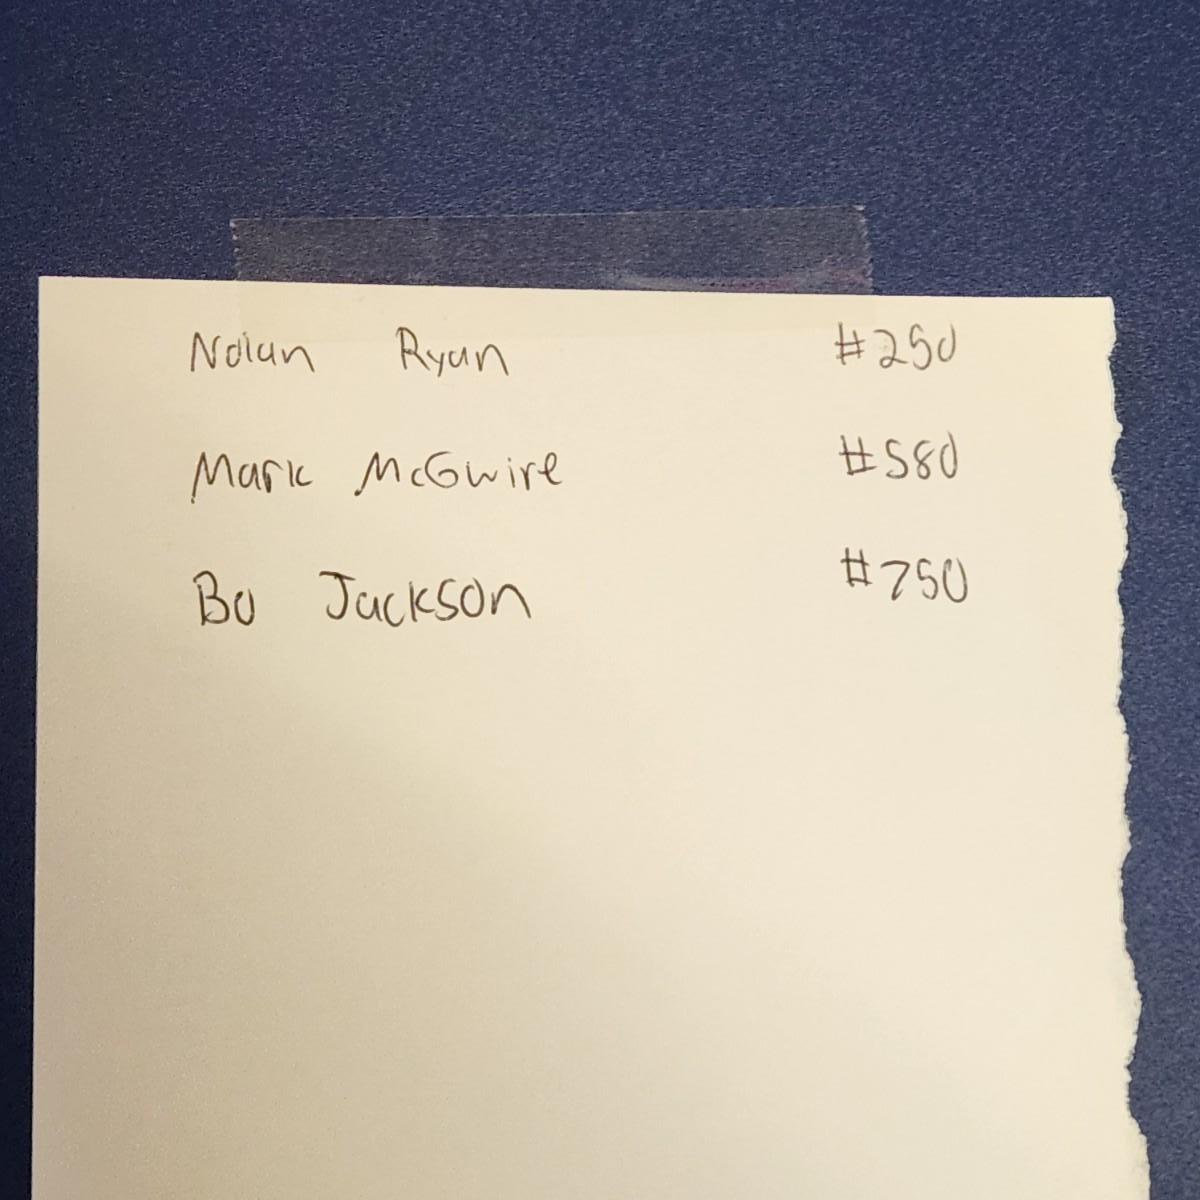 Nolan Ryan #250
Mark McGwire #580
Bo Jackson #750